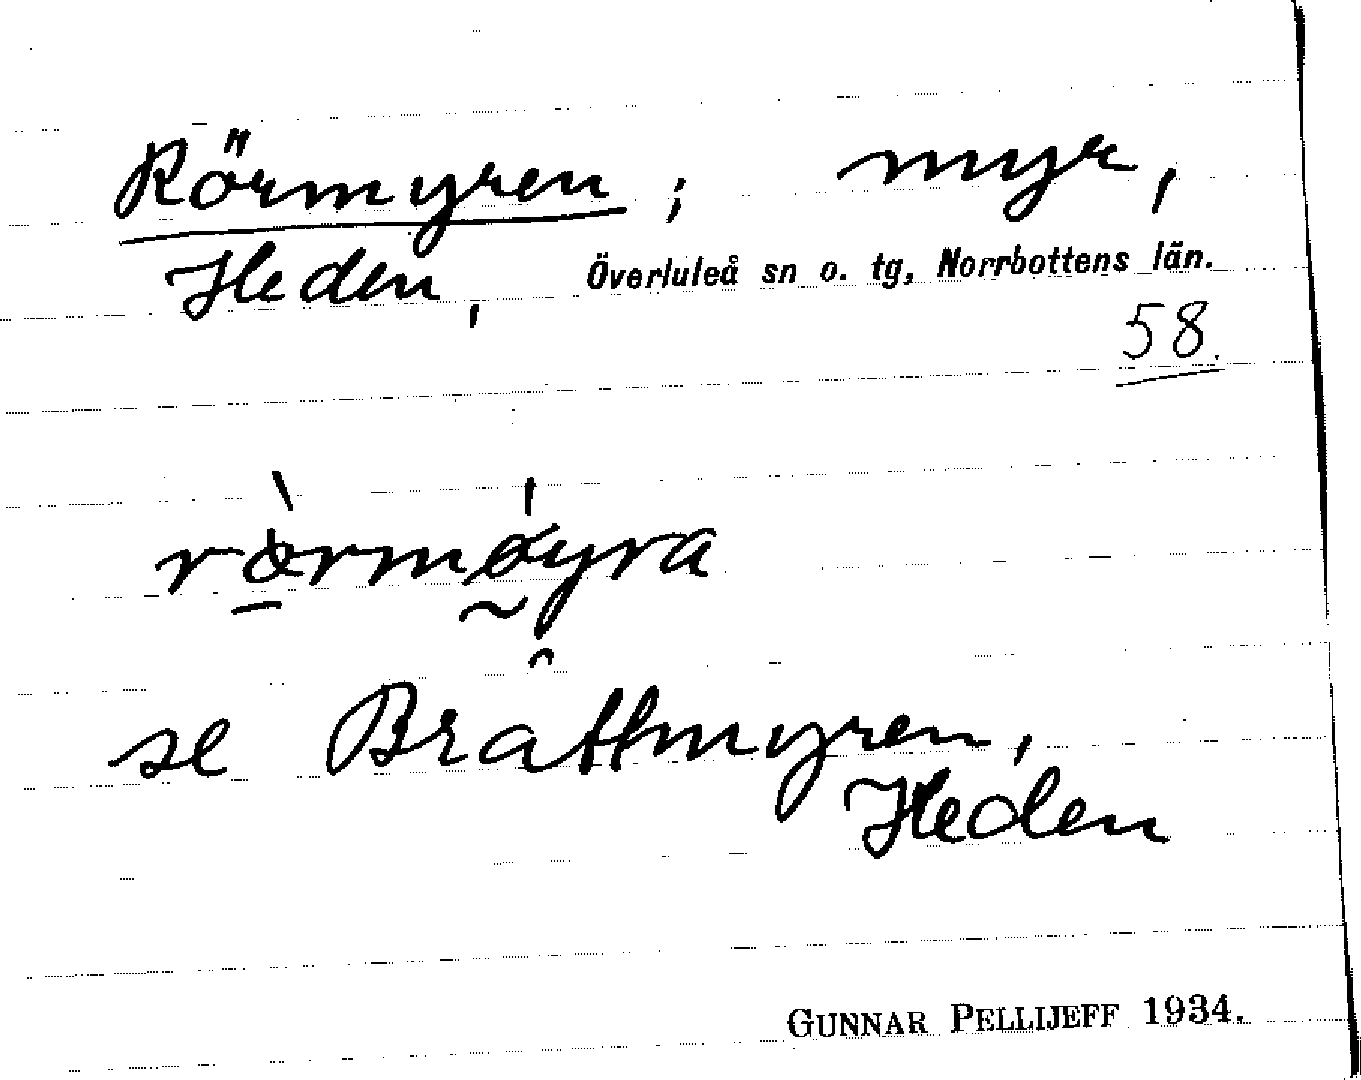 Rörmyren; myr,
Heden, Överluleå sn o. tg, Norrbottens län.
58.
se Brattmyren,
Heden
GUNNAR PELLIJEFF 1934.